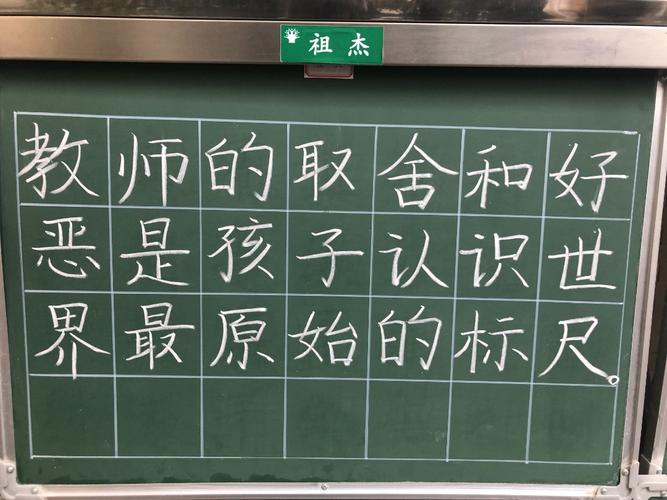 祖杰
教师的取舍和好
恶是孩子认识世
界最原始的标尺。